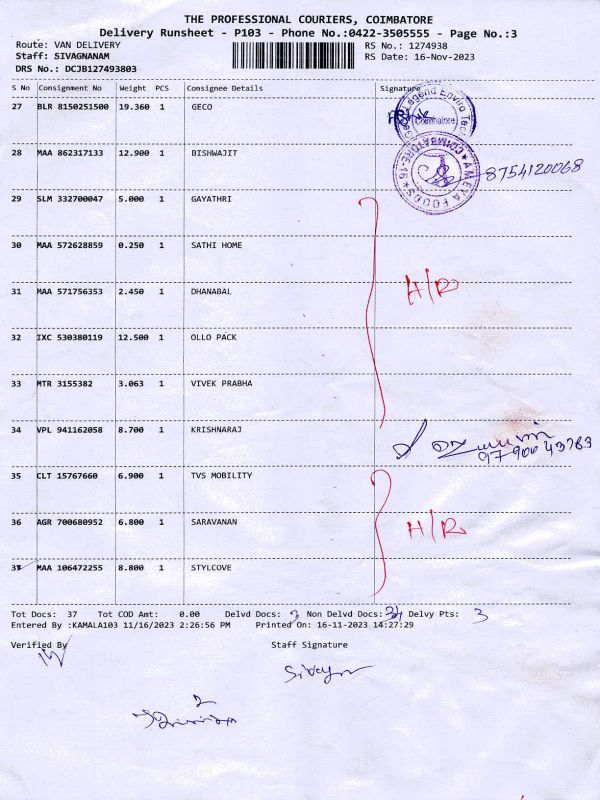 THE PROFESSIONAL COURIERS, COIMBATORE
Delivery Runsheet - P103 - Phone No.:0422-3505555 - Page No.:3
Route: VAN DELIVERY RS No.: 1274938
Staff: SIVAGNANAM RS Date: 16-Nov-2023
DRS No.: DCJB127493803
S No Consignment No Weight PCS Consignee Details Signature
27 BLR 8150251500 19.360 1 GECO
Legend Enviro
Coimbatore
28 MAA 862317133 12.900 1 BISHWAJIT
AMEYA FOODS COIMBATORE
8754120068
29 SLM 332700047 5.000 1 GAYATHRI
30 MAA 572628859 0.250 1 SATHI HOME
31 MAA 571756353 2.450 1 DHANABAL H/R
32 IXC 530380119 12.500 1 OLLO PACK
33 MTR 3155382 3.063 1 VIVEK PRABHA
34 VPL 941162058 8.700 1 KRISHNARAJ
35 CLT 15767660 6.900 1 TVS MOBILITY
36 AGR 700680952 6.800 1 SARAVANAN H/R
37 MAA 106472255 8.800 1 STYLCOVE
Tot Docs: 37 Tot COD Amt: 0.00 Delvd Docs: 3 Non Delvd Docs: 34 Delvy Pts: 3
Entered By :KAMALA103 11/16/2023 2:26:56 PM Printed On: 16-11-2023 14:27:29
Verified By Staff Signature